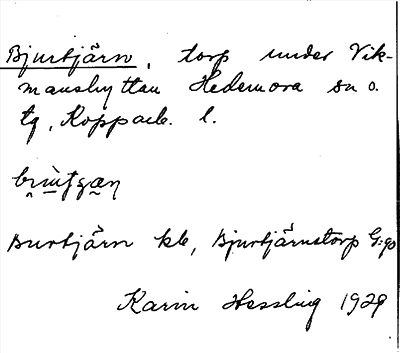 Bjurtjärn, torp under Vik-
manshyttan Hedemora sn o.
tg, Kopparb. l.
Burtjärn kb, Bjurtjärnstorp G:go
Karin Hessling 1929